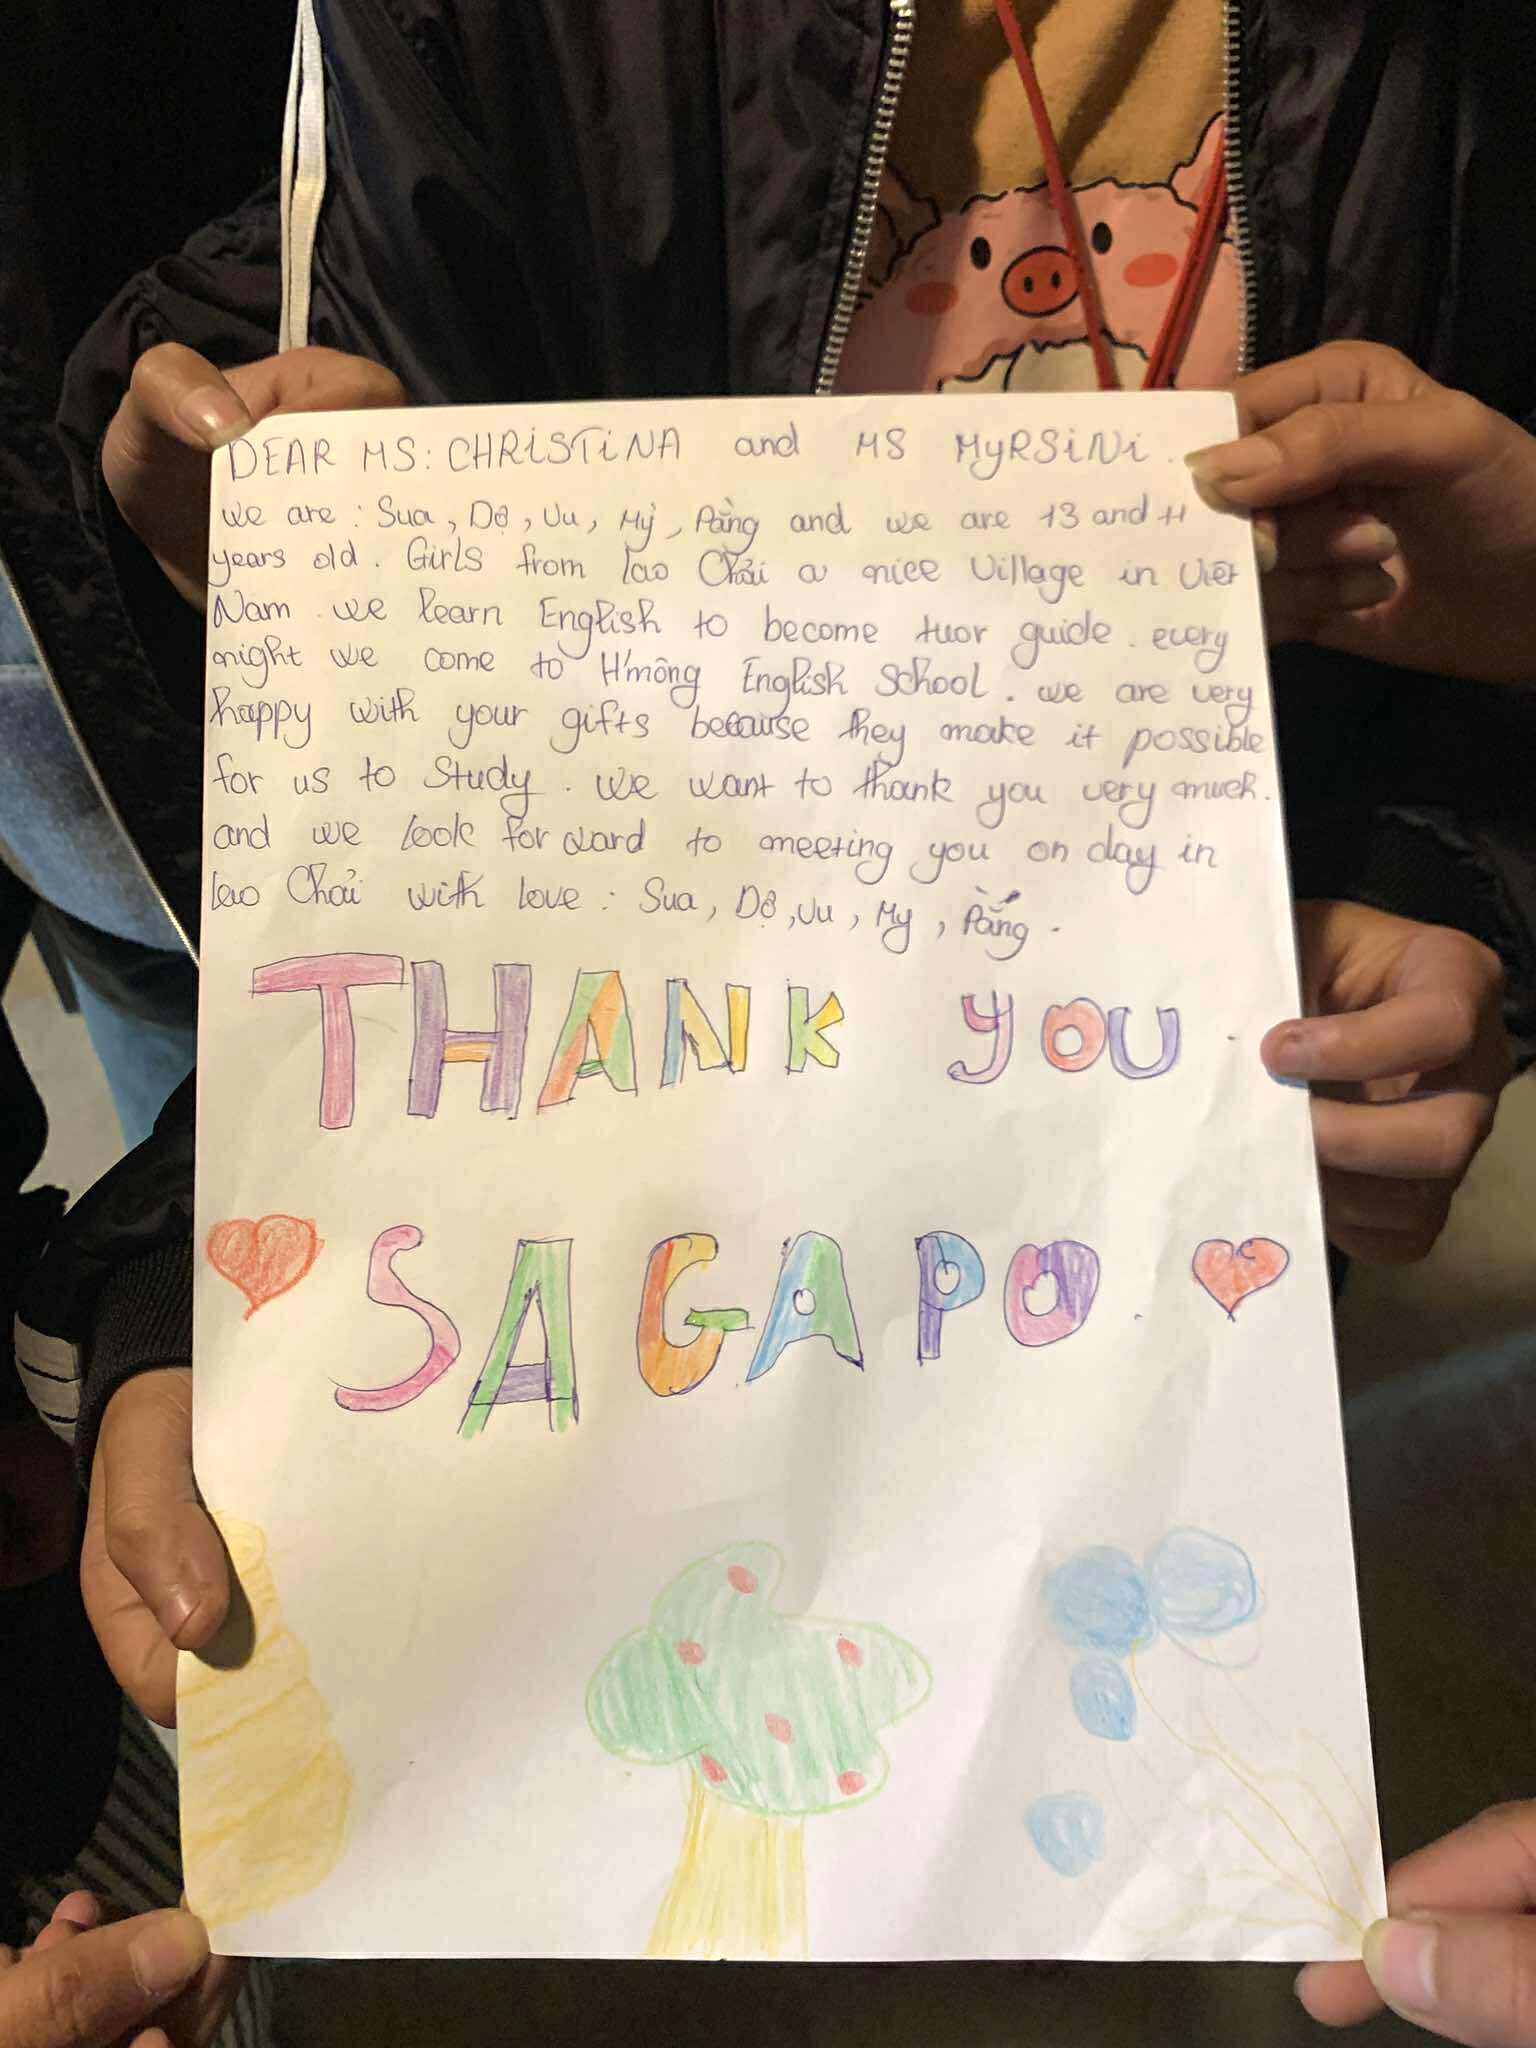 DEAR MS: CHRiSTiNA and MS MyRSiNi.
we are : Sua, Dợ, Vu, Mỷ, Pằng and we are 13 and 11
years old. Girls from lao Chải a nice Village in Việt
Nam. we learn English to become tuor guide. every
night we come to H'mông English School. we are very
happy with your gifts because they make it possible
for us to Study. we want to thank you very much.
and we look for ward to meeting you on day in
lao Chải with love : Sua, Dợ, Vu, My, Pằng.
THANK yOU.
SAGAPO.